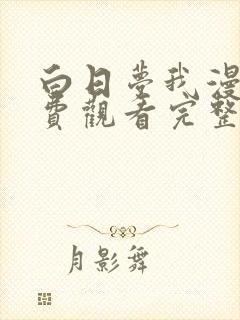 白日夢我漫
費觀看完整
月影舞